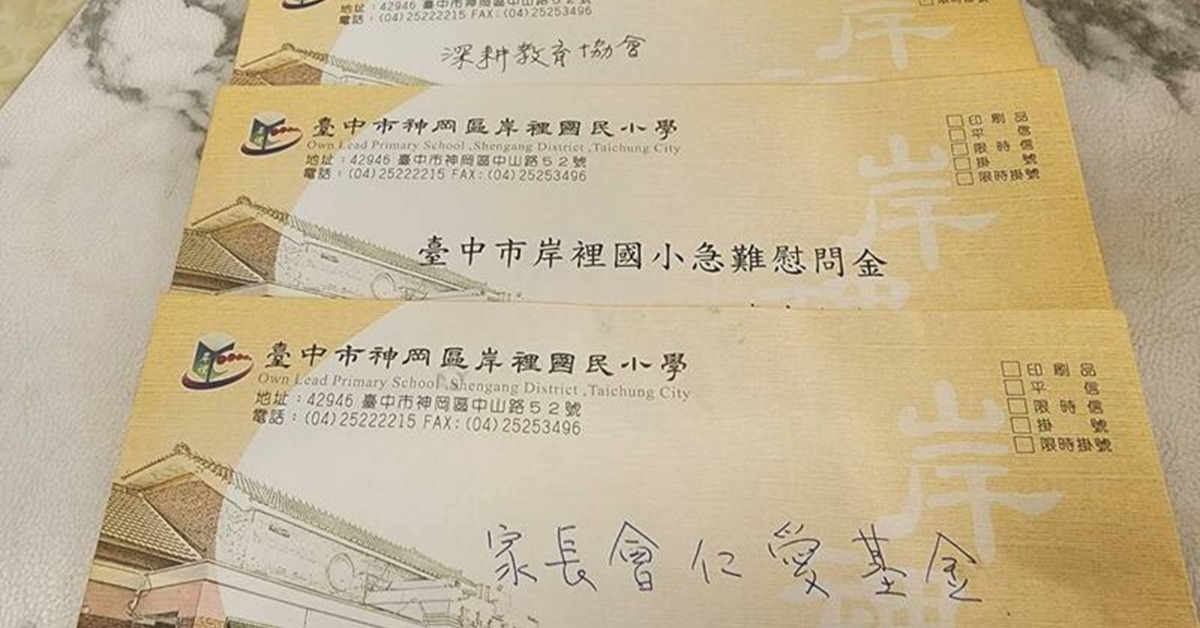 地址：42946 臺中市神岡區中山路５２號
電話：(04)25222215 FAX：(04)25253496
限時掛號
深耕教育協會
岸
臺中市神岡區岸裡國民小學
Own Lead Primary School ,Shengang District ,Taichung City
地址：42946 臺中市神岡區中山路５２號
電話：(04)25222215 FAX：(04)25253496
印刷品
平信
限時信
掛號
限時掛號
岸
臺中市岸裡國小急難慰問金
臺中市神岡區岸裡國民小學
Own Lead Primary School ,Shengang District ,Taichung City
地址：42946 臺中市神岡區中山路５２號
電話：(04)25222215 FAX：(04)25253496
印刷品
平信
限時信
掛號
限時掛號
岸
家長會仁愛基金